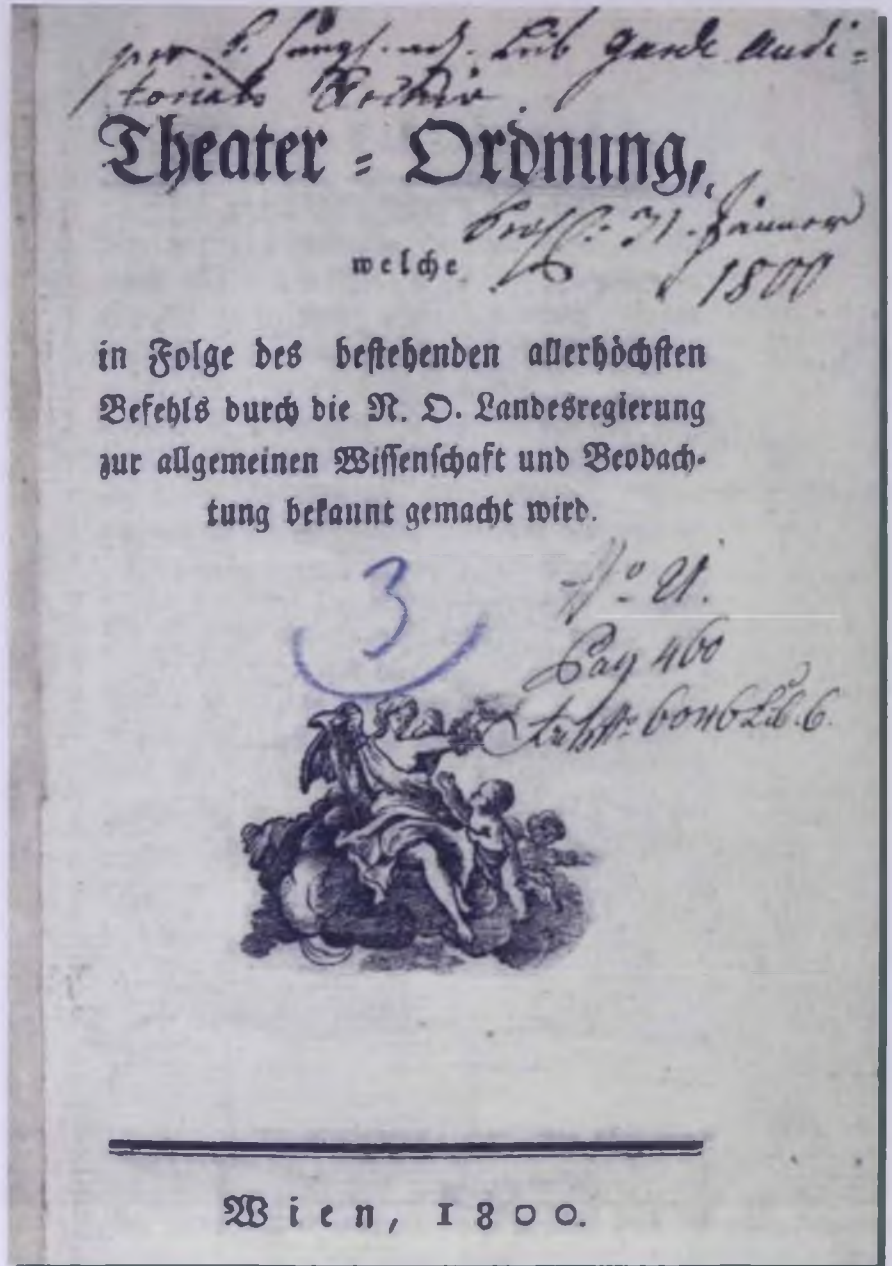 Leib Garde Audi=
torials
Theater = Ordnung,
31. Jänner
welche
1800
in Folge des bestehenden allerhöchsten
Befehls durch die N. O. Landesregierung
zur allgemeinen Wissenschaft und Beobach-
tung bekannt gemacht wird.
3
No 21.
Pag 460
6
Wien, 1800.